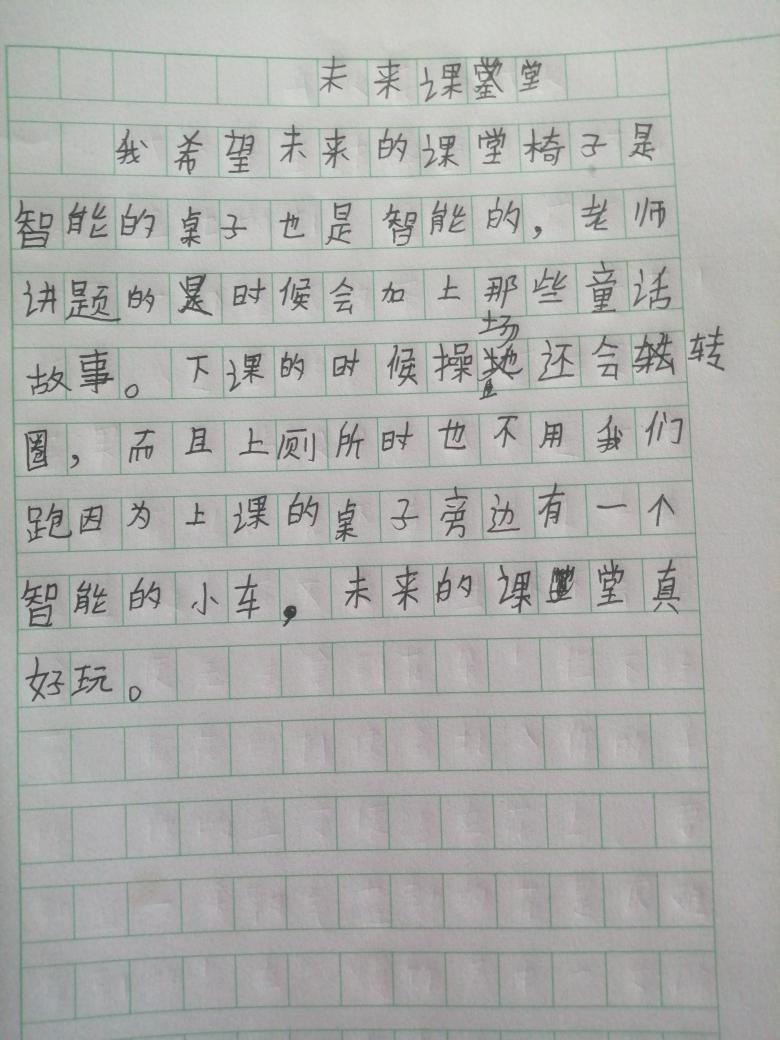 未来课堂
我希望未来的课堂椅子是
智能的桌子也是智能的，老师
讲题的时候会加上那些童话
故事。下课的时候操场还会转
圈，而且上厕所时也不用我们
跑因为上课的桌子旁边有一个
智能的小车，未来的课堂真
好玩。